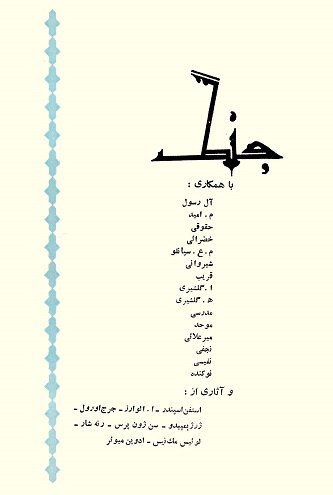 جنگ
با همکاری :
آل رسول
م . امید
حقوقی
خضرائی
م . ع . سپانلو
شیروانی
قریب
ا . گلشیری
ه . گلشیری
مدرسی
موحد
میرعلائی
نجفی
نفیسی
نوکنده
و آثاری از :
استفن اسپندر - ا . الوارز - جرج اورول -
ژرژ پمپیدو - سن ژون پرس - رنه شار -
لوئیس مک نیس - ادوین میوئر